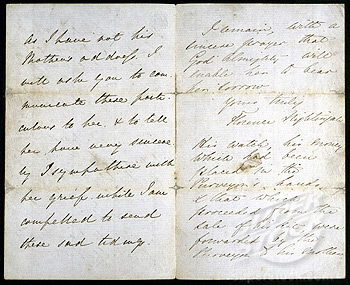 As I have not his
Mothers address, I
will ask you to com-
municate these parti-
culars to her, & to tell
her how very sincere-
ly I sympathise with
her grief while I am
compelled to send
these sad tidings.
I remain, with a
sincere prayer that
God Almighty will
enable her to bear
her sorrow
Yours truly
Florence Nightingale
His watch, his money
which had been
placed in the
Purveyor's hands,
& that which
proceeded from the
sale of his were
forwarded by the
Purveyor to his